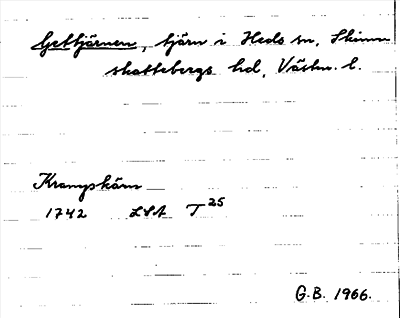 Gettjärnen, tjärn i Heds sn, Skinn-
skattebergs hd, Västm. l.
Krampskärn
1742 LSA T 25
G.B. 1966.